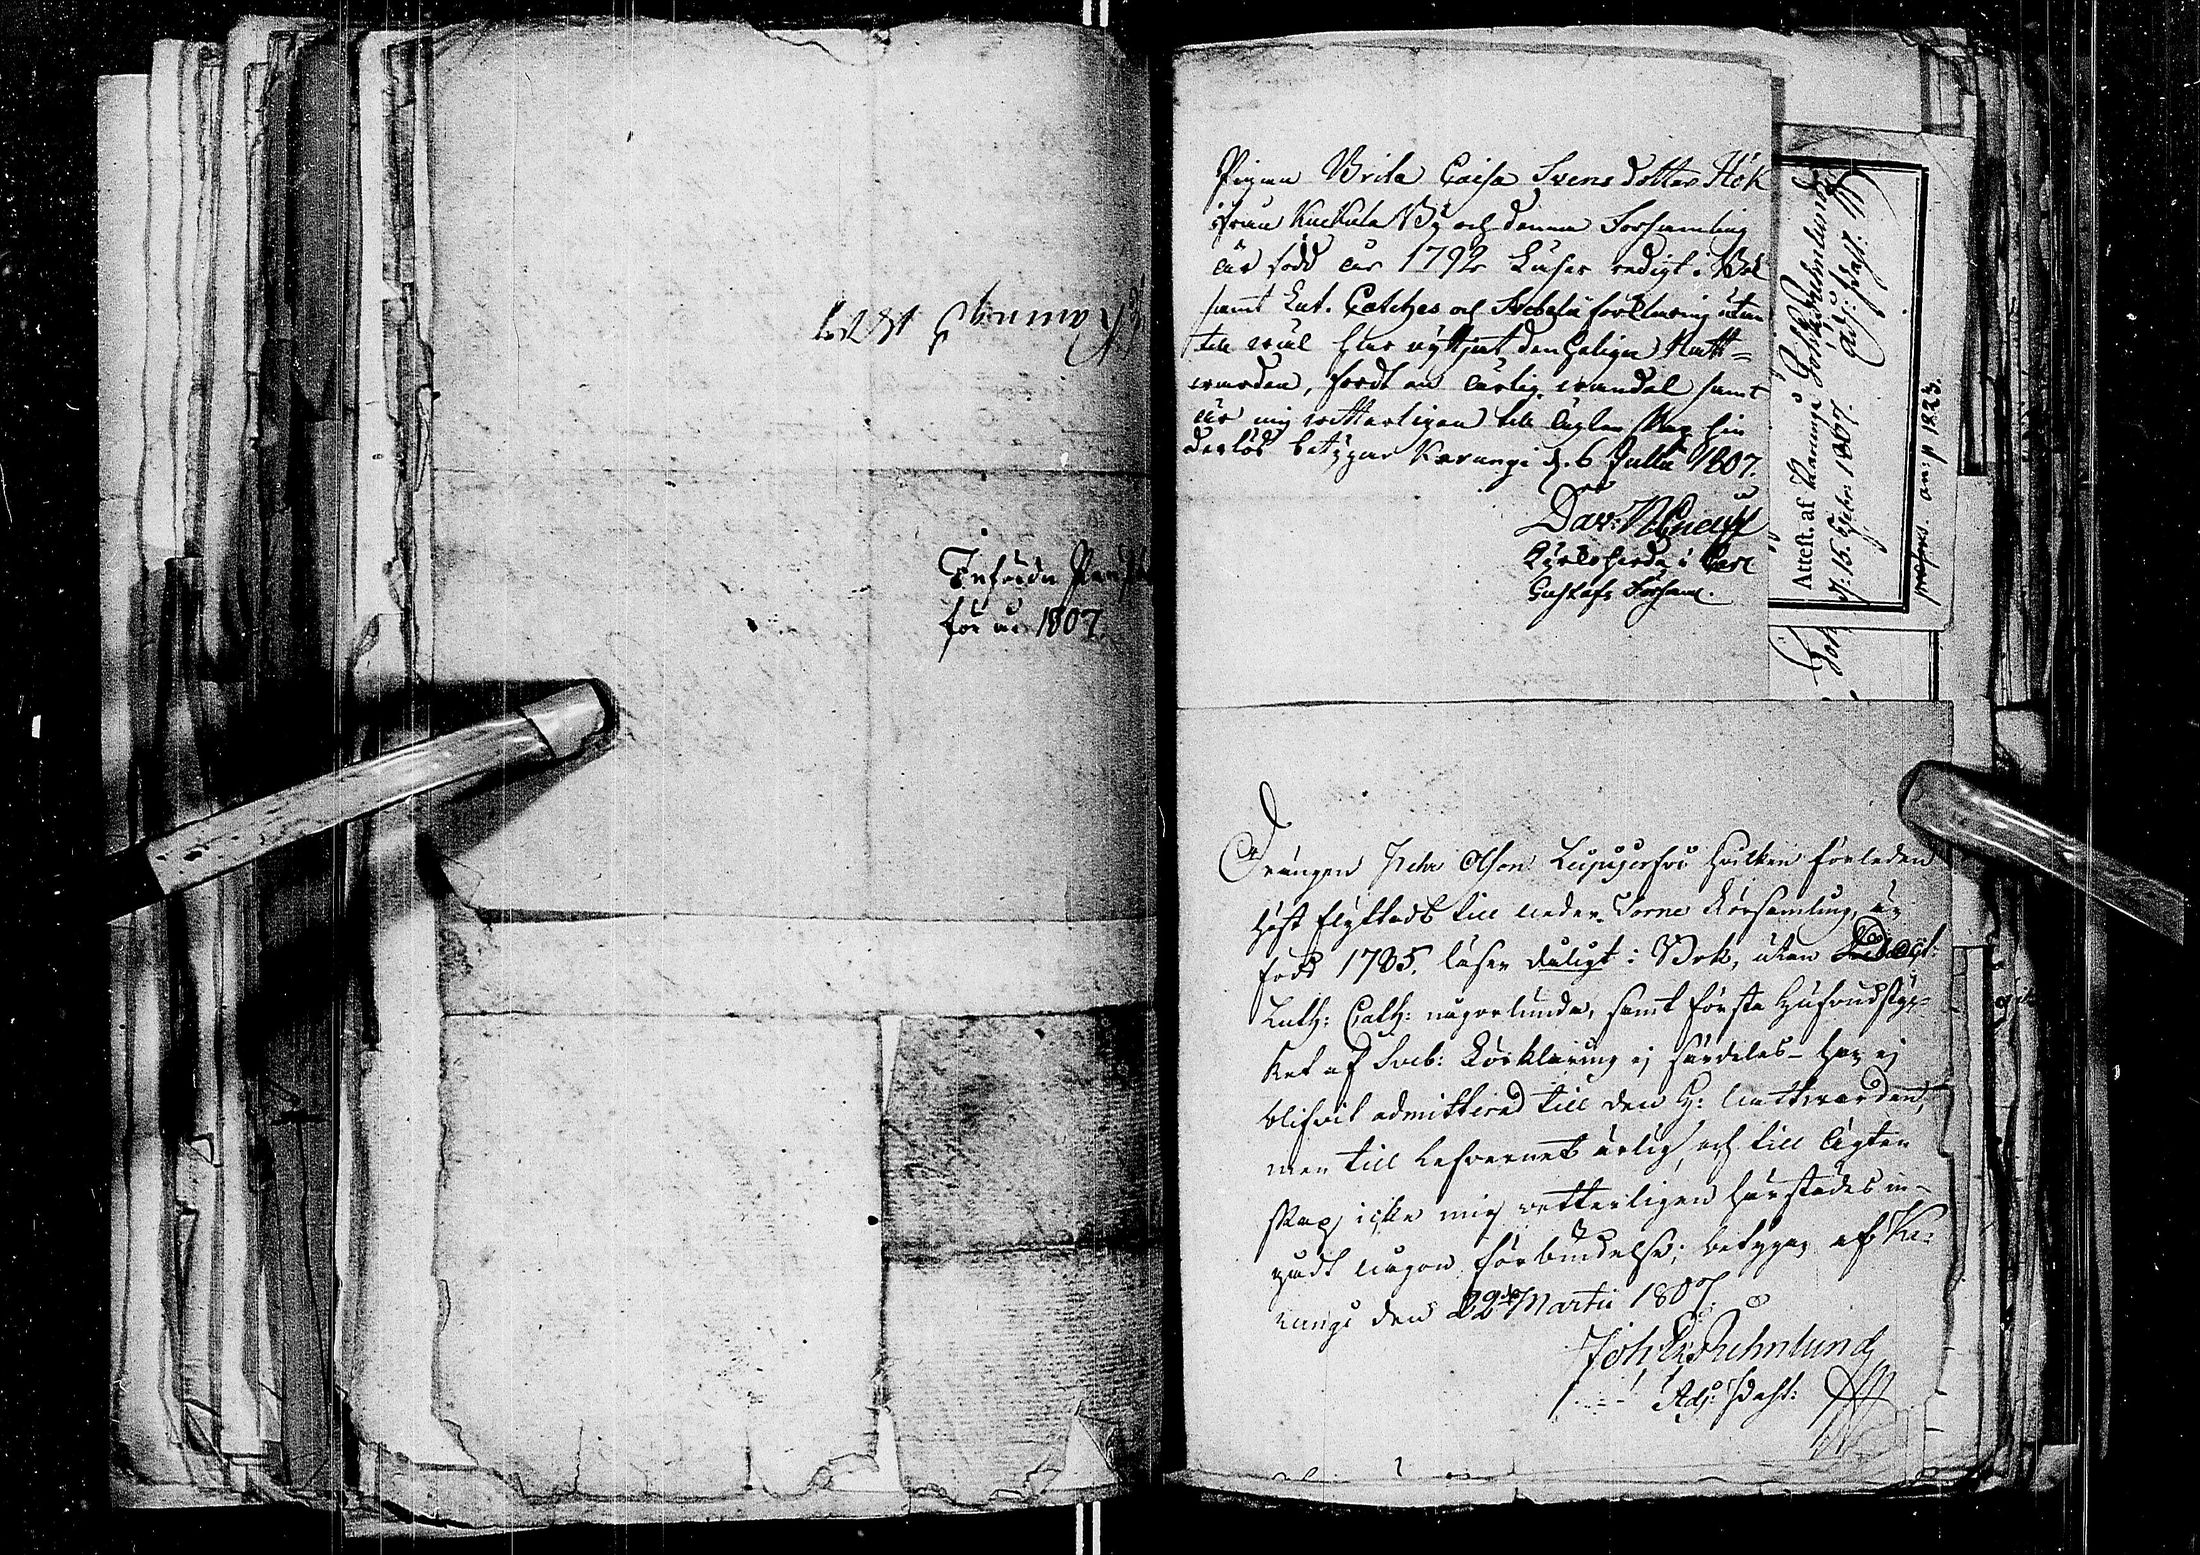 Karungi 1807
Införda Pass
för år 1807.
Pigan Brita Caisa Svensdotter Hök
ifrån Kuckula By och denna Församling
är född år 1792 Läser redigt i Bok
samt Lut. Cateches och Svebelii förklaring utan
till wäl har nyttjat den Heliga Natt=
warden, fördt en ärlig wandel samt
är mig witterligen till ägtenskap hin
derlös betygar Karungi d. 6 Julii 1807.
Kyrkoherde i Carl
Gustafs Församl.
Attest. af Karungi
d: 15. 1807. Adj: Past:
1823.
Joh
Drängen Pehr Olsson hvilken förleden
höst flyttade till neder Torne Församling, är
född 1785, läser dåligt i Bok, utan
Luth: Cath: någorlunda, samt första Hufvudstyc-
ket af Sveb: Förklaring ej särdeles – har ej
blifvit admitterad till den H: Nattvarden,
men till lefvernet ärlig, och till ägten
skap icke mig vetterligen härstädes in-
gådt någon förbindelse; betygas af Ka-
rungi den 22de Martii 1807.
Joh: Er: Rehnlund
Adj: Past: